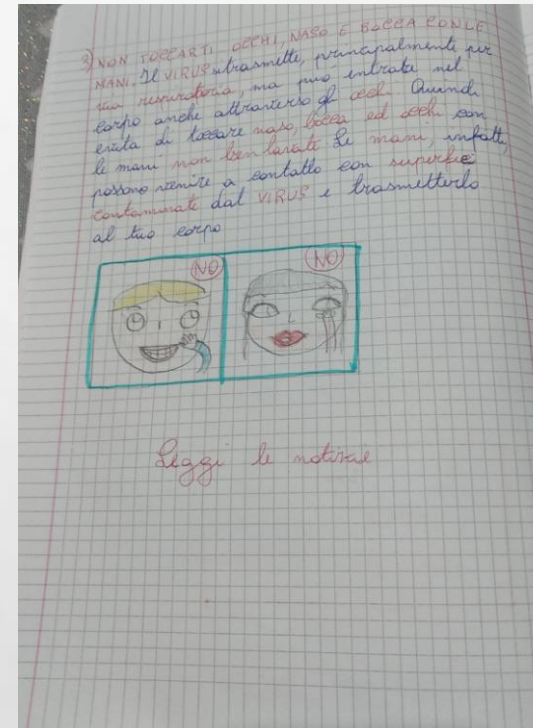 3) NON TOCCARTI OCCHI, NASO E BOCCA CON LE
MANI. Il VIRUS si trasmette, principalmente per
via respiratoria, ma può entrare nel
corpo anche attraverso gli occhi. Quindi
evita di toccare naso, bocca ed occhi con
le mani non ben lavate. Le mani, infatti,
possono venire a contatto con superficie
contaminate dal VIRUS e trasmetterlo
al tuo corpo
NO NO
Leggi le notizie